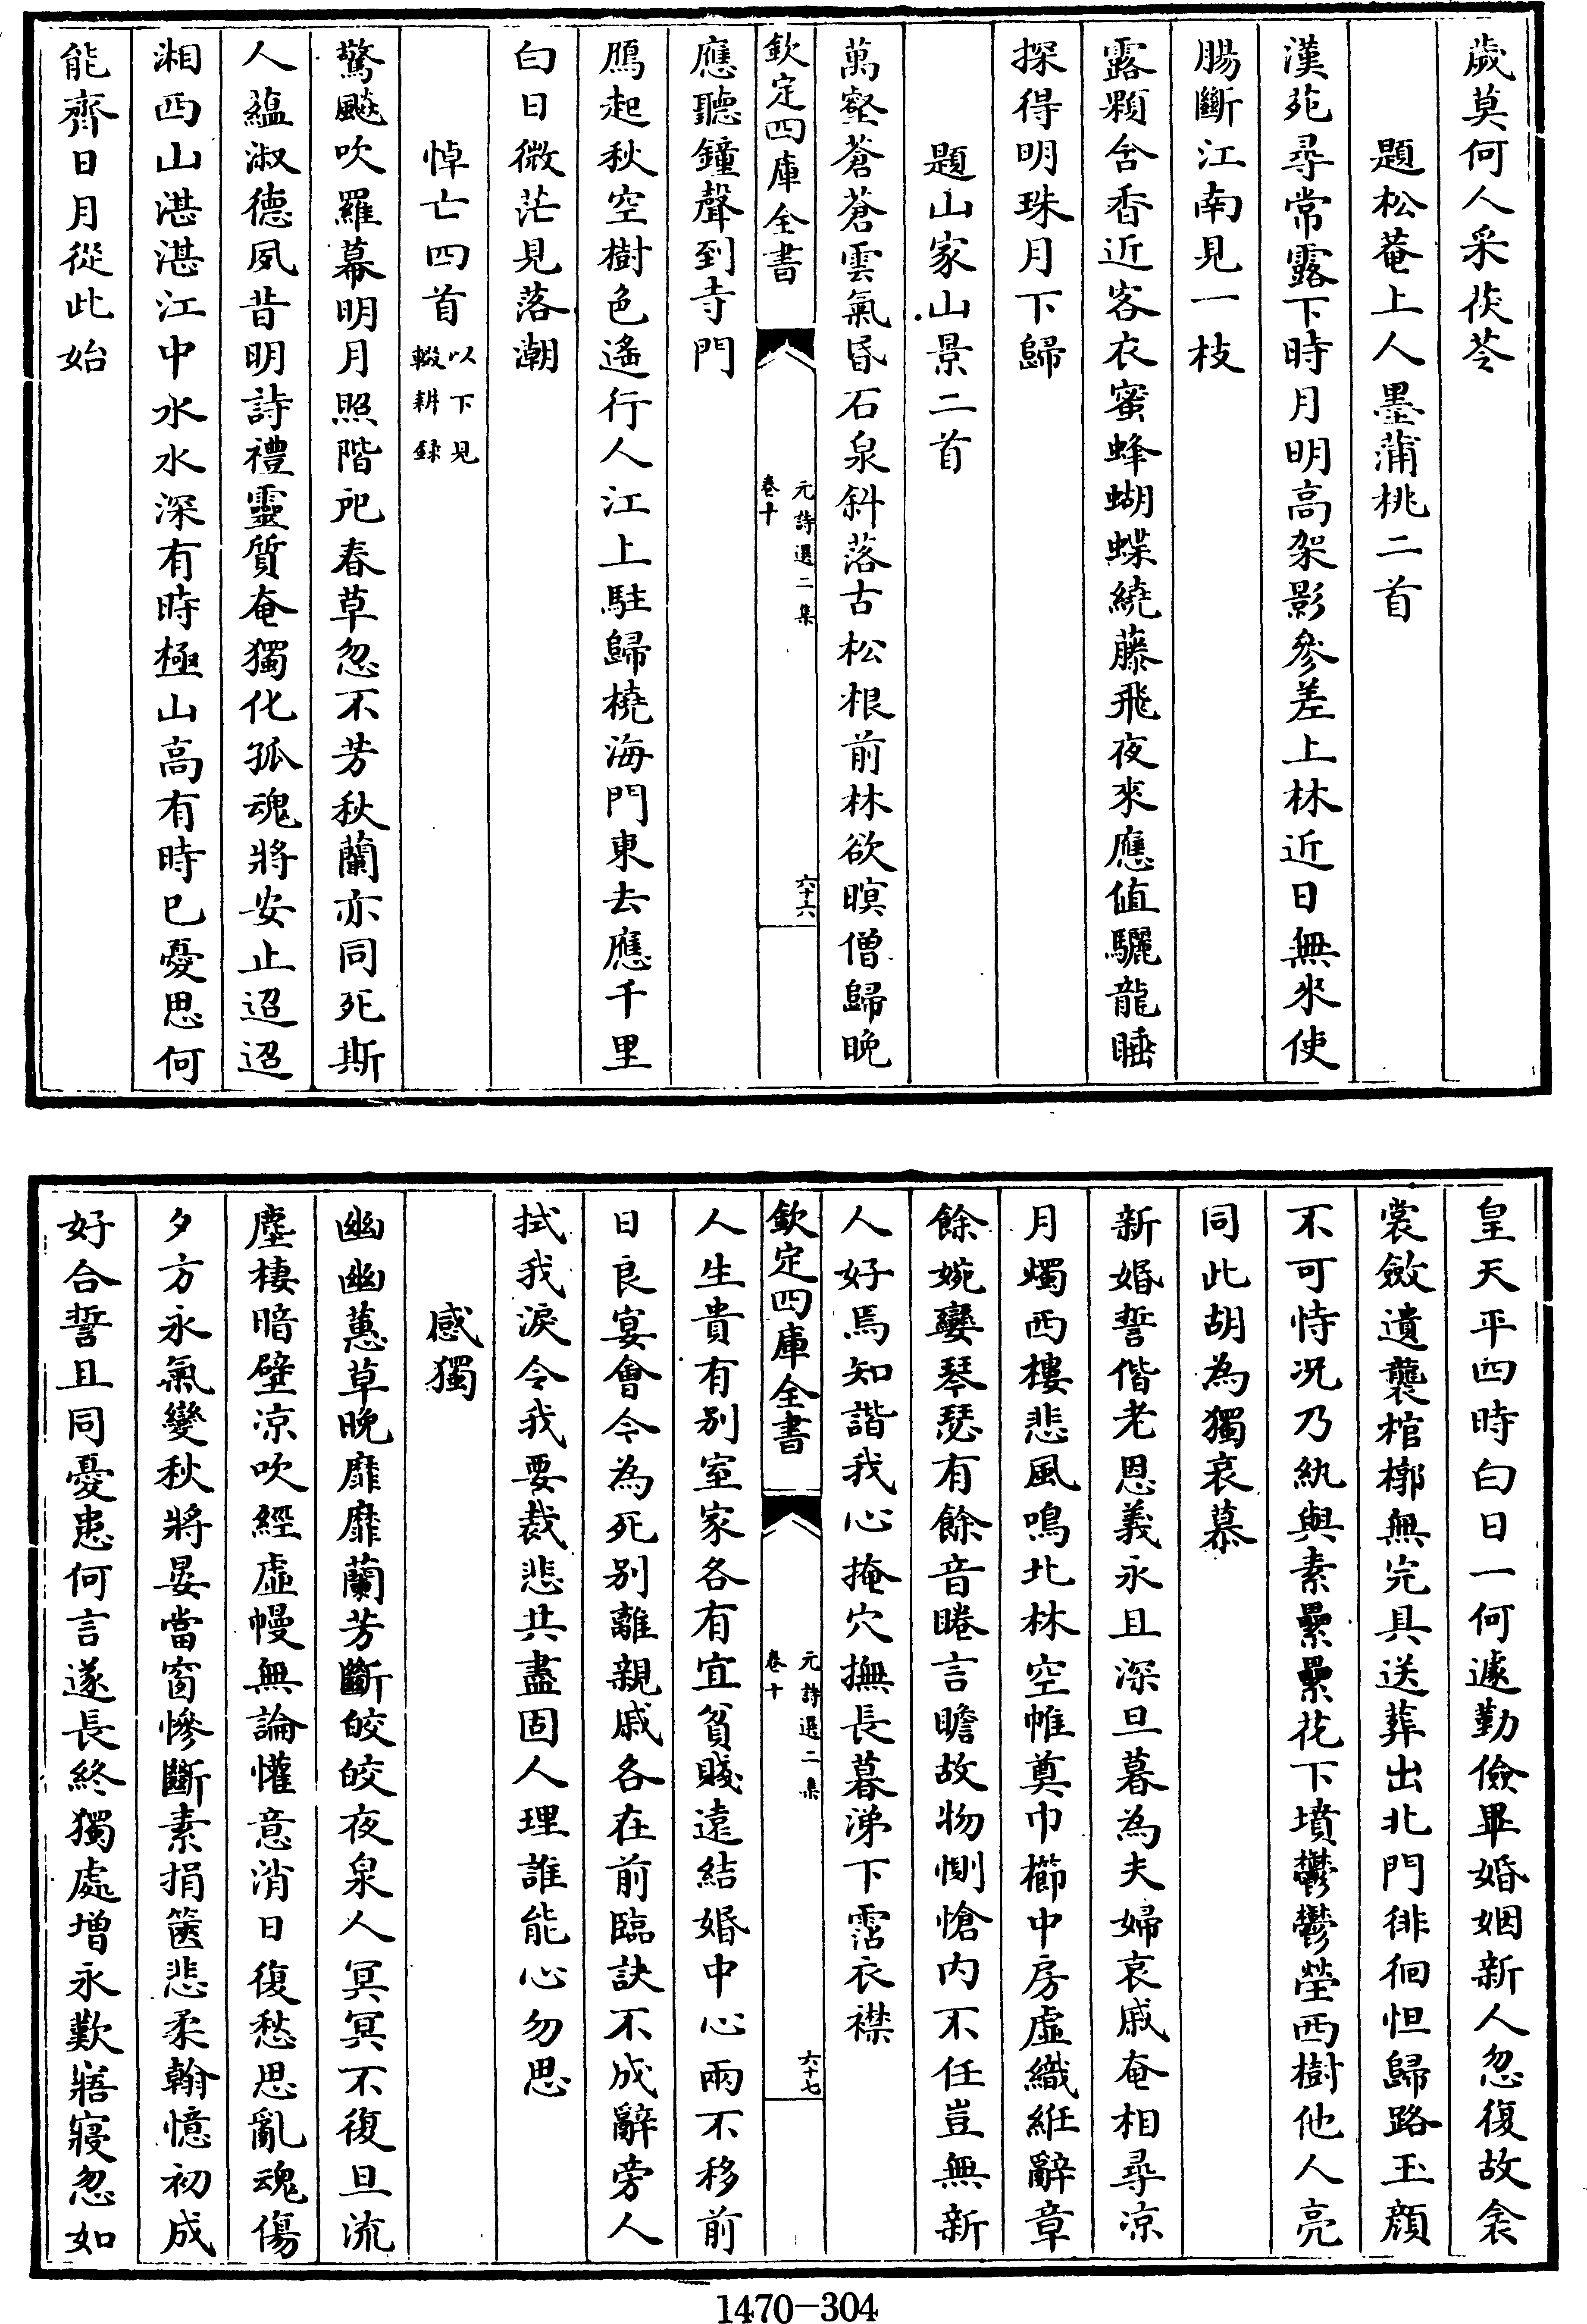 歲莫何人采茯苓
題松菴上人墨蒲桃二首
漢苑尋常露下時月明高架影參差上林近日無來使
腸斷江南見一枝
露顆含香近客衣蜜蜂蝴蝶繞藤飛夜來應值驪龍睡
探得明珠月下歸
題山家山景二首
萬壑蒼蒼雲氣昏石泉斜落古松根前林欲暝僧歸晚
欽定四庫全書
元詩選二集
卷十
六十六
應聽鐘聲到寺門
鴈起秋空樹色遙行人江上駐歸橈海門東去應千里
白日微茫見落潮
悼亡四首 以下見輟耕錄
驚飈吹羅幕明月照階戺春草忽不芳秋蘭亦同死斯
人蘊淑德夙昔明詩禮靈質奄獨化孤魂將安止迢迢
湘西山湛湛江中水水深有時極山高有時已憂思何
能齊日月從此始
皇天平四時白日一何遽勤儉畢婚姻新人忽復故衾
裳斂遺襲棺槨無完具送葬出北門徘徊怛歸路玉顏
不可恃况乃紈與素纍纍花下墳鬱鬱塋西樹他人亮
同此胡為獨哀慕
新婚誓偕老恩義永且深旦暮為夫婦哀戚奄相尋凉
月燭西樓悲風鳴北林空帷奠巾櫛中房虛織紝辭章
餘婉孌琴瑟有餘音睠言瞻故物惻愴内不任豈無新
人好焉知諧我心掩穴撫長暮涕下霑衣襟
欽定四庫全書
元詩選二集
卷十
六十七
人生貴有别室家各有宜貧賤遠結婚中心兩不移前
日良宴會今為死别離親戚各在前臨訣不成辭旁人
拭我淚令我要裁悲共盡固人理誰能心勿思
感獨
幽幽蕙草晚靡靡蘭芳斷皎皎夜泉人冥冥不復旦流
塵棲暗壁凉吹經虛幔無論懽意消日復愁思亂魂傷
夕方永氣變秋將晏當窗慘斷素捐篋悲柔翰憶初成
好合誓且同憂患何言遂長終獨處增永歎寤寢忽如
1470-304